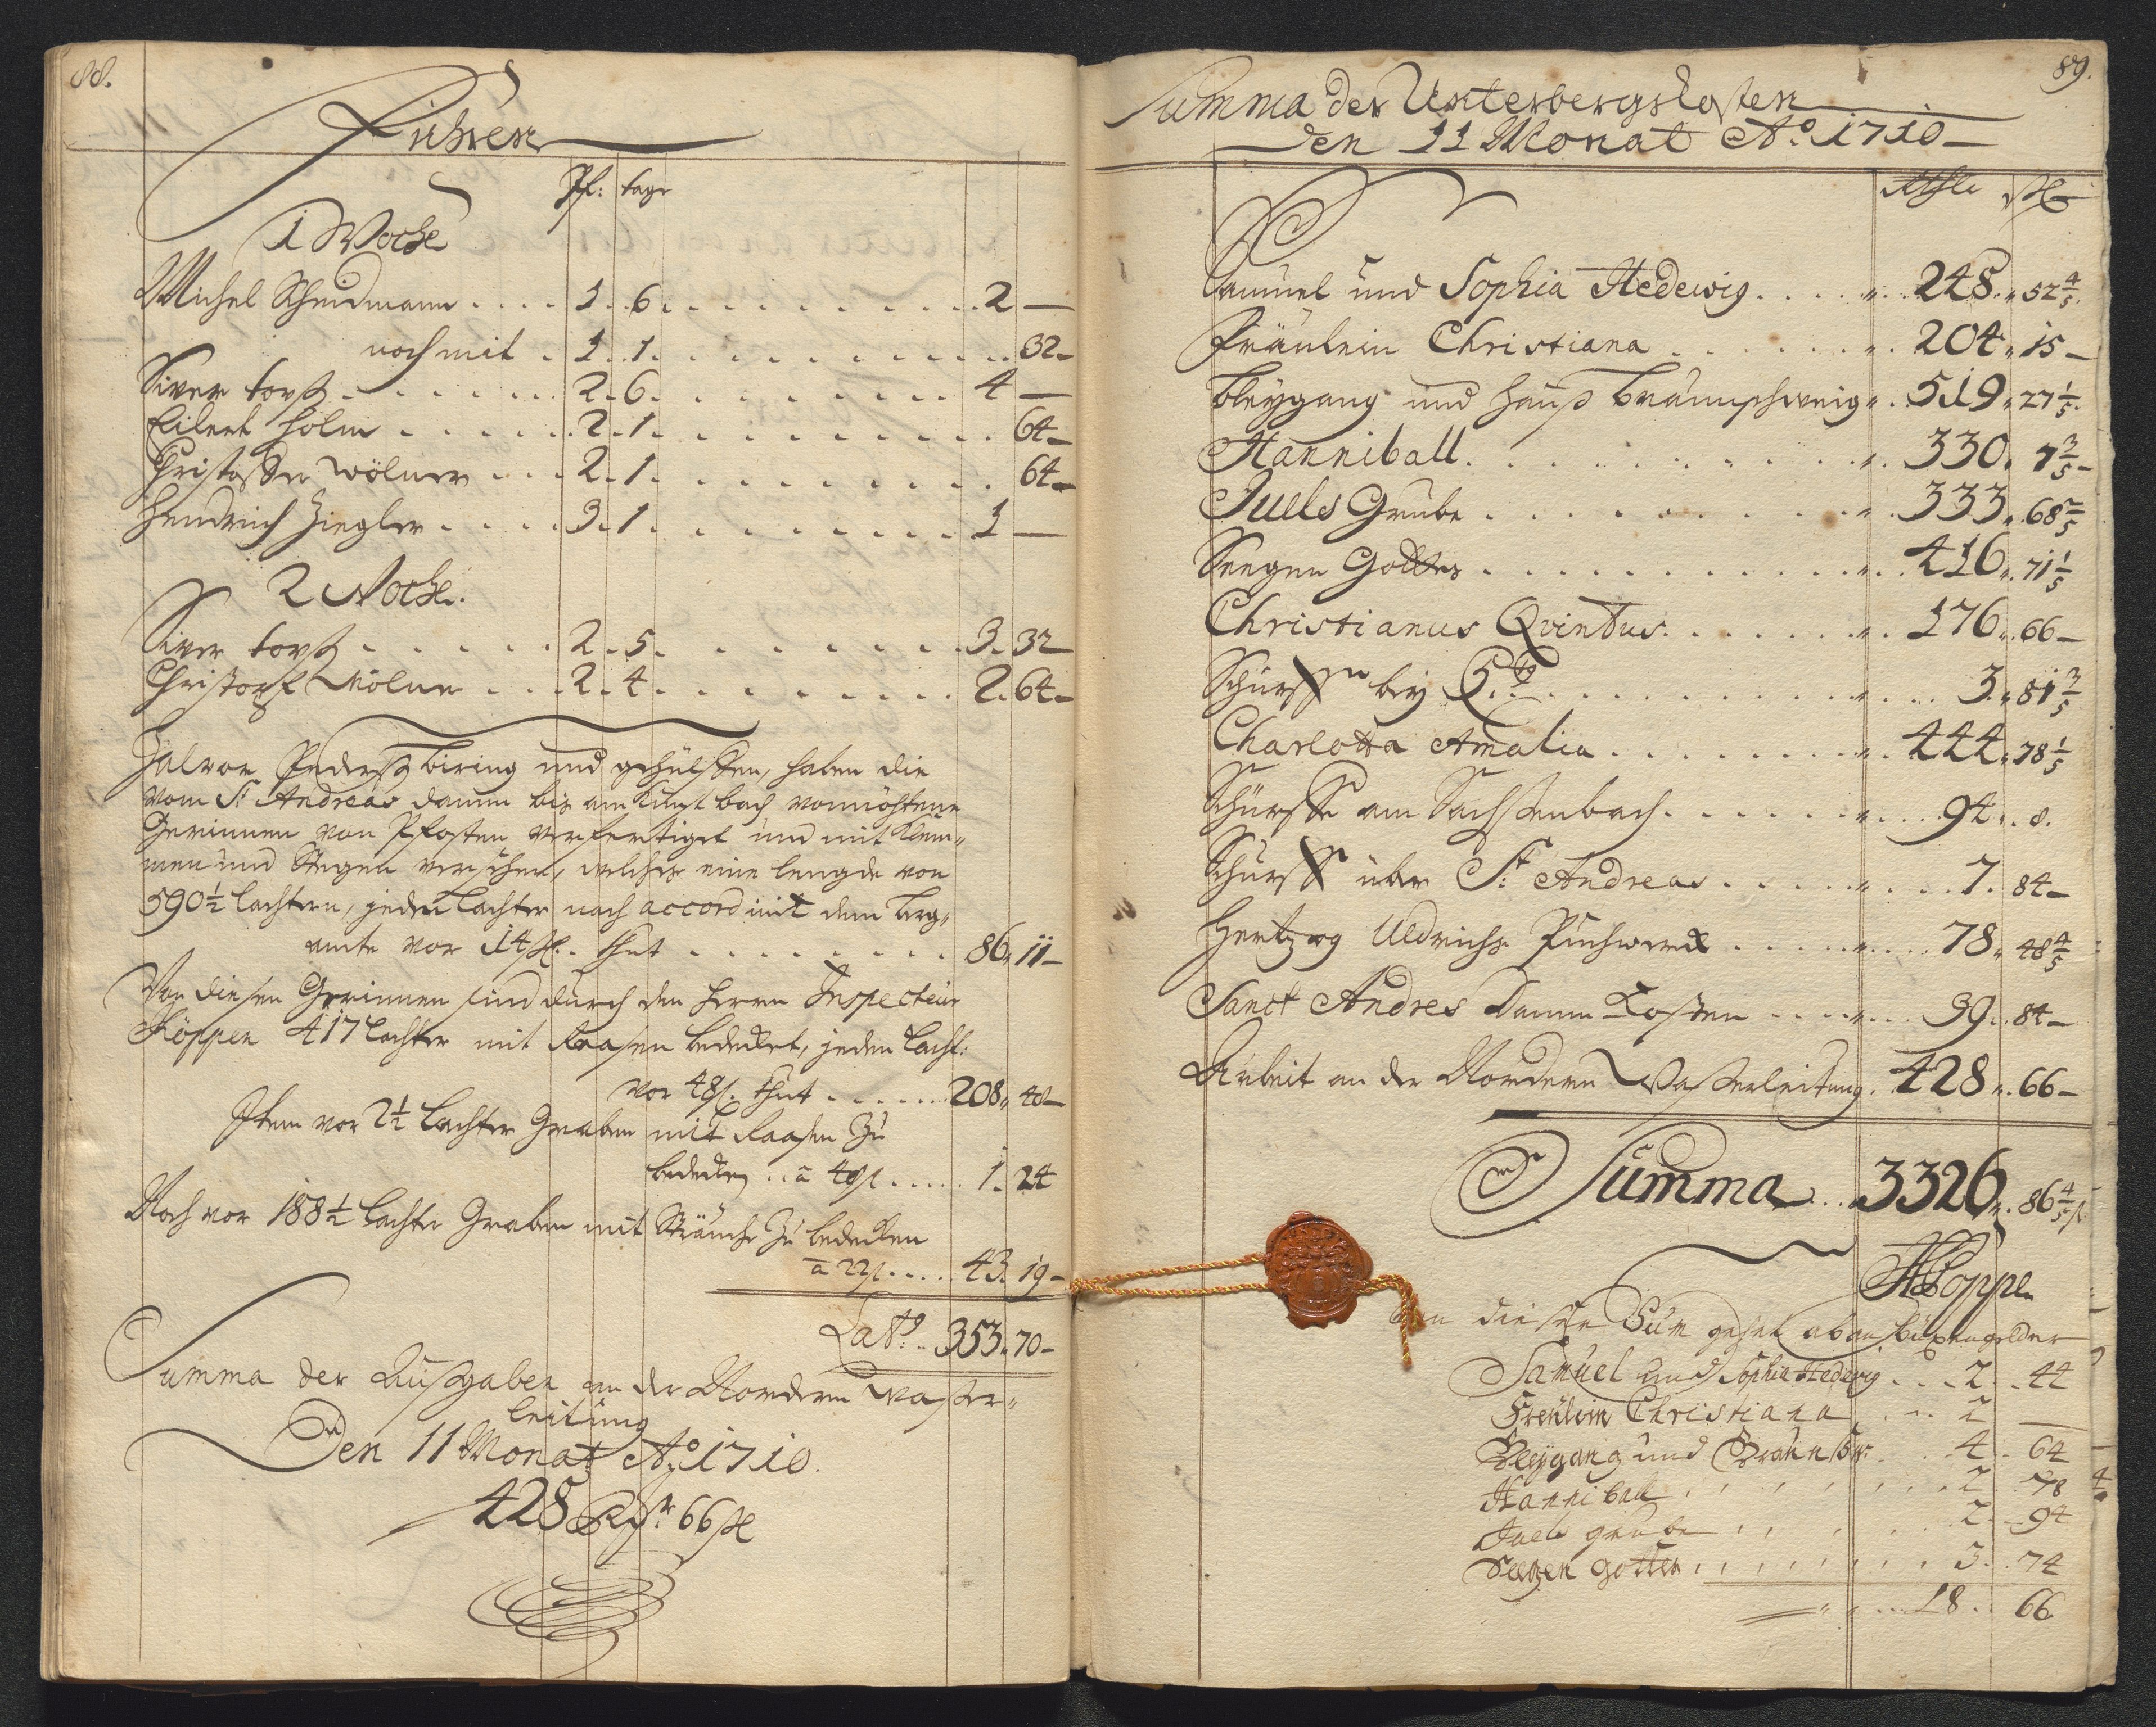 88.
Fuhren
Pf: tage
1 Woche
Michel Schmidmann .... 1. 6. ......... 2 —
noch mit . 1. 1. ......... 32 —
Siver torß ...... 2. 6. ......... 4 —
Eilert Holm ...... 2. 1. ......... 64 —
Christoffer Wölner ... 2. 1. ......... 64 —
Hendrich Ziegler .... 3. 1. ......... 1 —
2 Woche.
Siver torß ...... 2. 5. ......... 3. 32
Christoff Wölner ... 2. 4. ......... 2. 64 —
Halvor Pederß biring und gehülffen, haben die
vom St Andreas damm bis am Kunst bach
Gerinnen von Pfosten verfertiget und mit Klam„
men und Stegen versehen, welches eine lengde von
590½ lachtern, jeden Lachter nach accord mit dem berg„
amte vor 14 ß. thut ......... 86. 11 —
Von diesen Gerinnen sind durch den Herrn Inspecteur
Köppen 417 Lachter mit Raasen bedecket, jeden Lacht:
vor 48 ß. thut ...... 208. 48 —
Item vor 2½ Lachter Graben mit Raasen Zu
bedecken .. a 48 ß ...... 1. 24
Noch vor 188½ Lachter Graben mit Sträuche Zu bedecken
a 22 ß .... 43. 19 —
Lat9 .. 353. 70 —
Summa der Außgaben an der Nordern Waßer„
leitung
Den 11 Monat Ao 1710.
428 Rthr 66 ß
89.
Summa der Unterbergskosten
Den 11 Monat Ao. 1710 —
Rthlr ß
Samuel und Sophia Hedewig ..... 248. „ 52 4/5.
Fräulein Christiana ....... 204 „ 15 —
Bleygang und Hauß Braunschweig „. 519 „ 27 1/5.
Hanniball. .......... 330. 7 3/5 —
Juels Grube ......... 333 „ 68 2/5
Seegen Gottes .......... 416 „ 71 1/5
Christianus Qvintus. ....... 176 „ 66 —
Schürff bey 5te. .......... 3. „ 81 3/5
Charlotta Amalia ........ 444 „ 78 1/5
Schürffe am Sachssenbach. ...... 94 .. 8.
Schürff über St. Andreas ....... 7. 84 —
Hertzog Uldrichs Puchwerck ....... 78 „ 48 4/5
Sanct Andres Damm Kosten ....... 39. 84 —
Arbeit an der Nordern Waßerleitung. 428 „. 66 —
Summa .... 3326 „. 86 4/5 ß
Köppe
Von diesen Sum gehet ab an Büxengelder
Samuel und Sophia Hedewig ... 2 .. 44
Freülein Christiana ... 2 —
Bleÿgang und Braunschw: .. 4 .. 64
Hanniball ....... 2 . 78
Juels grube ....... 2 .. 94
Seegen Gottes ........ 3 .. 74
.... 18 .. 66